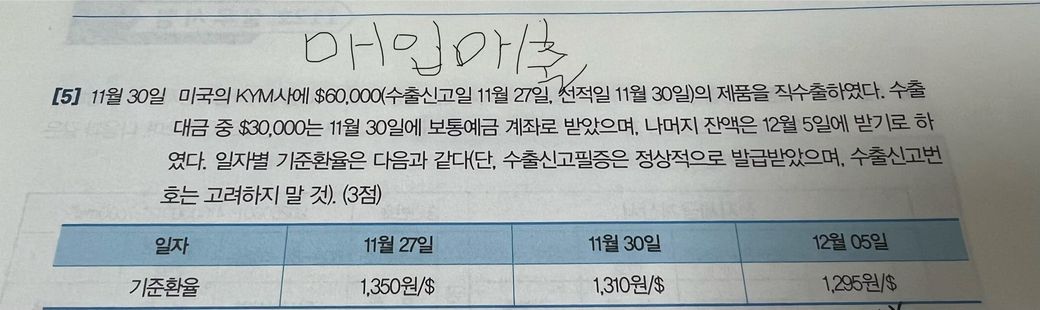 매입매출
[5] 11월 30일 미국의 KYM사에 $60,000(수출신고일 11월 27일, 선적일 11월 30일)의 제품을 직수출하였다. 수출
대금 중 $30,000는 11월 30일에 보통예금 계좌로 받았으며, 나머지 잔액은 12월 5일에 받기로 하
였다. 일자별 기준환율은 다음과 같다(단, 수출신고필증은 정상적으로 발급받았으며, 수출신고번
호는 고려하지 말 것). (3점)
일자 11월 27일 11월 30일 12월 05일
기준환율 1,350원/$ 1,310원/$ 1,295원/$